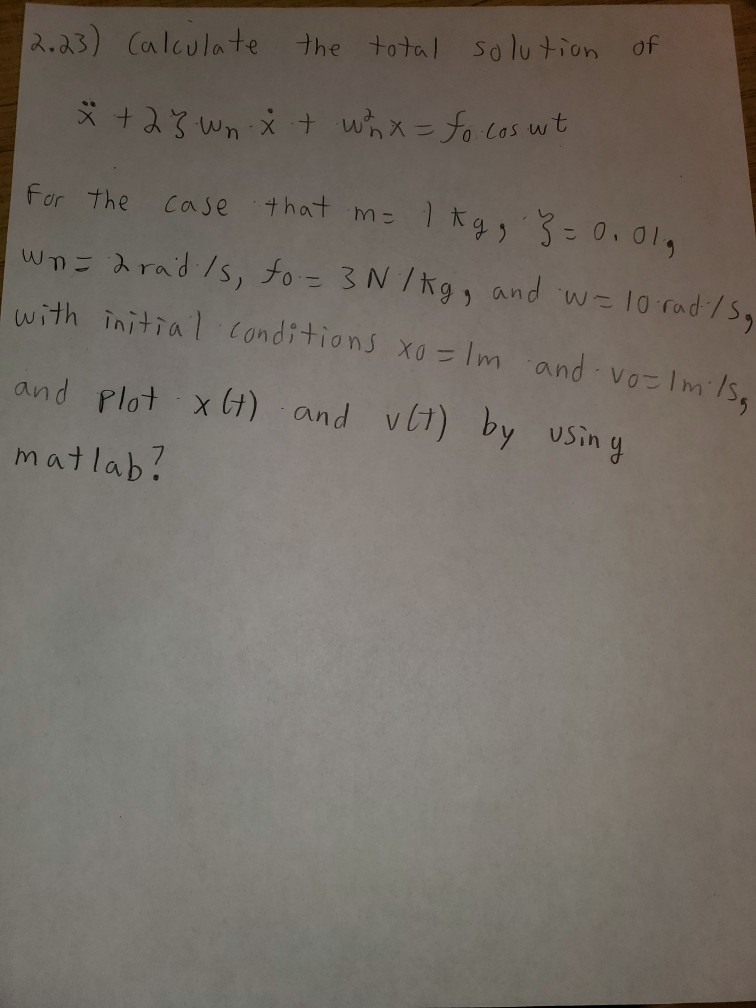 2.23) Calculate the total solution of
ẍ + 2ζ wn · ẋ + w²n x = fo cos wt
For the case that m = 1 kg, ζ = 0.01,
wn = 2 rad/s, fo = 3 N/kg, and w = 10 rad/s,
with initial conditions xo = 1m and vo = 1m/s,
and plot x(t) and v(t) by using
matlab?